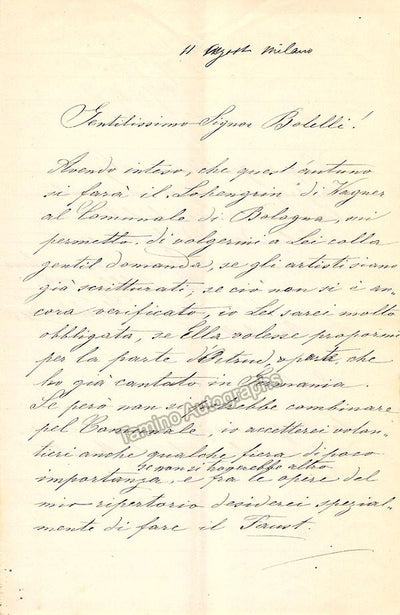 11 Agost Milano
Gentilissimo Signor Bolelli!
Avendo inteso, che quest'autuno
si farà il „Lohengrin" di Wagner
al Comunale di Bologna, mi
permetto di volgermi a Lei colla
gentil domanda, se gli artisti siano
già scritturati, se ciò non si è an-
cora verificato, io Le sarei molto
obbligata, se Ella volesse propormi
per la parte d'Ortrud, parte che
ho già cantato in
Se però non si combinare
pel Comunale, io accetterei volon-
tieri anche qualche fiera di poco
se non si troverebbe altro
importanza, e fra le opere del
mio ripertorio desiderei spezial-
mente di fare il Faust.
Tamino Autographs